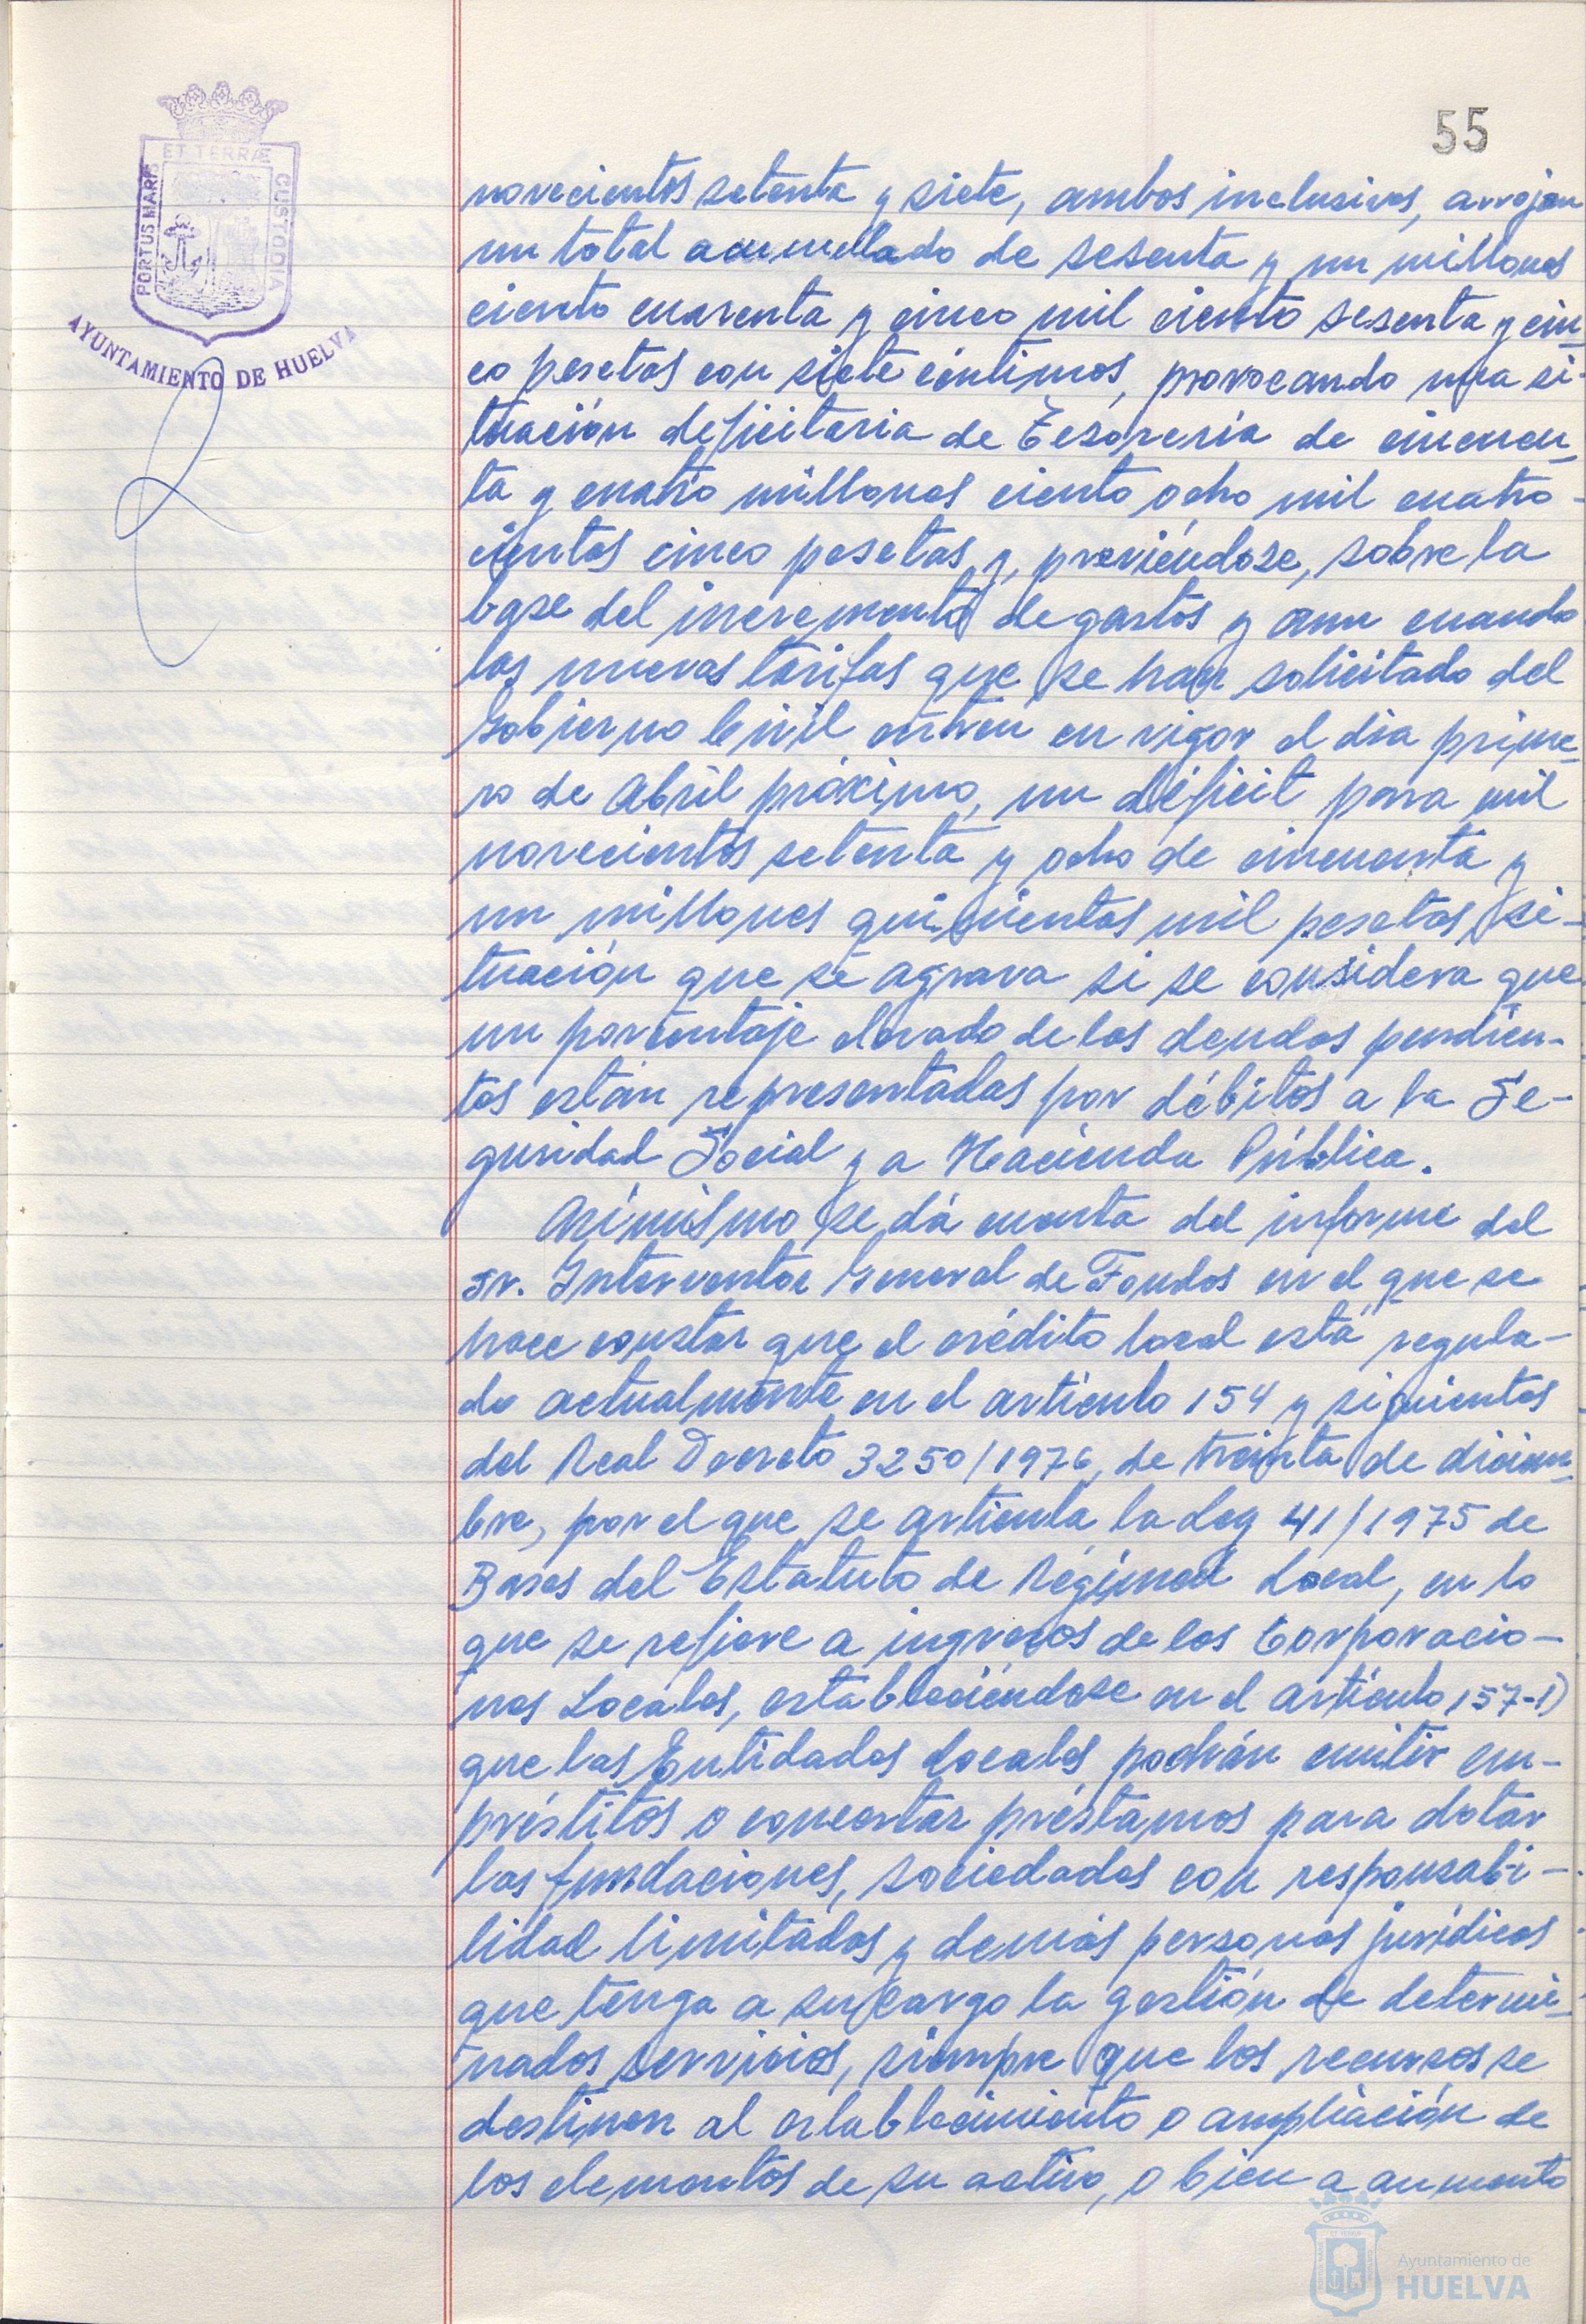 55
ET TERRÆ
PORTUS MARIS
CUSTODIA
AYUNTAMIENTO DE HUELVA
novecientos setenta y siete, ambos inclusives, arrojan
un total acumullado de sesenta y un millones
ciento cuarenta y cinco mil ciento sesenta y cin-
co pesetas con siete céntimos, provocando una si-
tuación deficitaria de Tesorería de cincuen-
ta y cuatro millones ciento ocho mil cuatro-
cientas cinco pesetas y, previéndose, sobre la
base del incremento de gastos y aun cuando
las nuevas tarifas que se han solicitado del
Gobierno Civil entren en vigor el día prime-
ro de Abril próximo, un déficit para mil
novecientos setenta y ocho de cincuenta y
un millones quinientas mil pesetas, si-
tuación que se agrava si se considera que
un porcentaje elevado de las deudas pendien-
tes están representadas por débitos a la Se-
guridad Social y a Hacienda Pública.
Asímismo se dá cuenta del informe del
Sr. Interventor General de Fondos en el que se
hace constar que el crédito local está regula-
do actualmente en el artículo 154 y siguientes
del Real Decreto 3250/1976, de treinta de diciem-
bre, por el que se articula la Ley 41/1975 de
Bases del Estatuto de Régimen Local, en lo
que se refiere a ingresos de las Corporacio-
nes Locales, estableciéndose en el artículo 157-1)
que las Entidades Locales podrán emitir em-
préstitos o concertar préstamos para dotar
las fundaciones, sociedades con responsabi-
lidad limitadas y demás personas jurídicas
que tenga a su cargo la gestión de determi-
nados servicios, siempre que los recursos se
destinen al establecimiento o ampliación de
los elementos de su activo, o bien a aumento
Ayuntamiento de
HUELVA